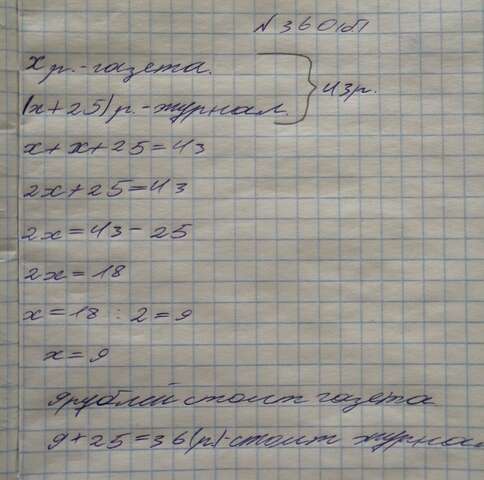 N 360(б)
x р. - газета.
(x + 25) р. - журнал. } 43р.
x + x + 25 = 43
2x + 25 = 43
2x = 43 - 25
2x = 18
x = 18 : 2 = 9
x = 9
9 рублей стоит газета
9 + 25 = 36 (р) - стоит журнал